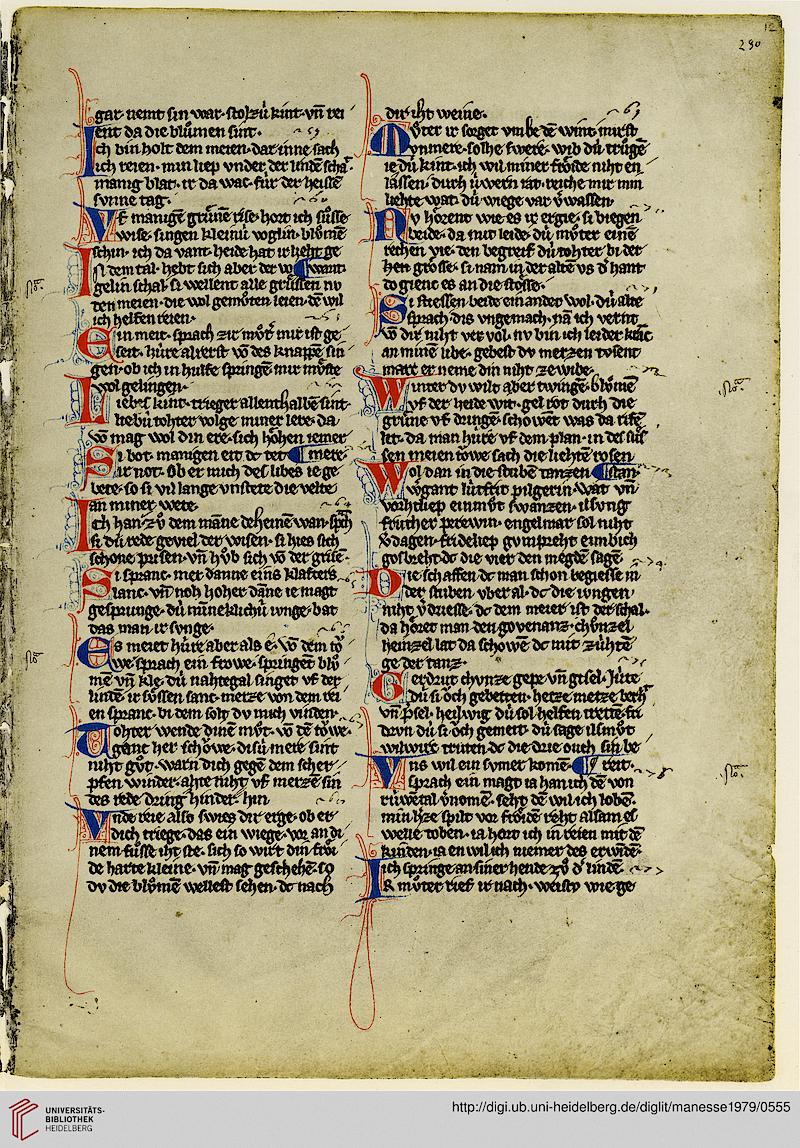 290
gar nemt sin war stolzú kint vn̄ rei
ent da die blůmen sint.
Ich bin holt dem meien dar inne sach
ich reien min liep vnder der linden schat
manig blat ir da was für der heissē
svnne tag.
Vf manigē grůnē rise hort ich sůsse
wise singen kleinú voglin blůmē
schin ich da vant heide hat ir lieht ge
want.
In dem tal hebt sich aber der vo
gelin schal si wellent alle grůssen nv
den meien die wol gemůten leien dē wil
ich helfen reien.
Ein meit sprach zir můt͛ mir ist ge
seit húre alrerst vō des knappē sin
gen ob ich in hulfe springē mir můste
wol gelingen.
Liebes kint trieger allenthalbē sint
liebú tohter volge miner lere da
vō mag wol din ere sich hohen iemer
mere.
Si bot manigen eit dc tet
ir not ob er mich des libes ie ge
bete so si vil lange vnstete die velte
an miner wete.
Ich han zů dem manne deheinē wan sp̄ch
si dú rede geviel der wisen si hies sich
schone prisen vn̄ hůb sich vō der grisē
Si spranc mer danne eins klafters
lanc vn̄ noh hoher dāne ie magt
gesprunge dú mīneklichú iunge bat
das man ir sunge.
Es meiet húre aber als e vō dem tǒ
we sprach ein frowe springēt blů
mē vn̄ kle dú nahtegal singet vf der
linde ir sůssen sanc merze von dem rei
en spranc bi dem solt du mich vinden
Tohter wende dinē můt vō dē tǒwe
gang her schǒwe disú mere sint
niht gůt warn dich gegē dem scher
pfen winder ahte niht vf merzē sin
des rede dring hinder hin
Vnde reie also swies dir erge ob er
dich triege das ein wiege vor an di
nem fůsse iht ste sich so wirt din frǒi
de harte kleine vn̄ mag geschehē so
dv die blůmē wellest sehen dc nach
dir iht weine.
Můter ir sorget vmbe dē wint mirst
vnmere solhe swere wib dú trůgē
ie dú kint ich wil miner frǒide niht en
lassen durch úwern rat reiche mir min
liehte wat dú wiege var v̓wassen
Nv hǒrent wie es ir ergie si biegen
beide da mit leide dú můter einē
rechen vie den begreif dú tohter bi der
hen grosse si nam in der altē vs d͛ hant
do gienc es an die stosse.
Si stiessen beide ein ander wol dú alte
sprach dis vngemach nā ich verint
vō dir niht ver vol nv bin ich leider krāc
an minē libe gebest dv merzen tvsent
marc er neme din niht ze wibe.
Winter dv wilt aber twingē blůmē
vf der heide wit gel rot durch die
grůne vf dringē schowet was da rifē
lit da man húre vf dem plan in des sůs
sen meien towe sach die liehten rosen
stan.
Wol dan in die stubē tanzen
wigant lútfrit pilgerin wat vn̄
vorhtliep einmůt swanzen ilsung
fritcher perewin engelmar sol niht
v̓dagen frideliep gumpreht einbich
gosbreht dc die vier den megdē sagē
Die schaffen dc man schon begiesse in
der stuben vber al dc die iungen
niht v̓driesse dc dem meier ist der schal
da hǒret man den govenanz chvnzel
heinzel lat da schowē dc mit zúhtē
ge der tanz.
Gerdrut chvnze gepe vn̄ gisel Jůte
dú si ǒch gebetten hetze metze berh͛
vn̄ P͛sel heilwig dú sol helfen trettē fri
drvn dú si ǒch gemeit dú sage ilsmůt
wilwirc truten dc die drie ouch sin be
reit.
Vns wil ein sumer komē
sprach ein magt ia han ich dē von
rúwetal v̓nomē seht dē wil ich lobē
min hˢze spilt vor frǒidē reht alsam es
welle toben ia hort ich in reien mit dē
kinden ia en wil ich niemer des erwīdē
ich springe an siner hende zů d͛ linde
Ir můter rief ir nach weistu wie ge
UNIVERSITÄTS-
BIBLIOTHEK
HEIDELBERG
http://digi.ub.uni-heidelberg.de/diglit/manesse1979/0555